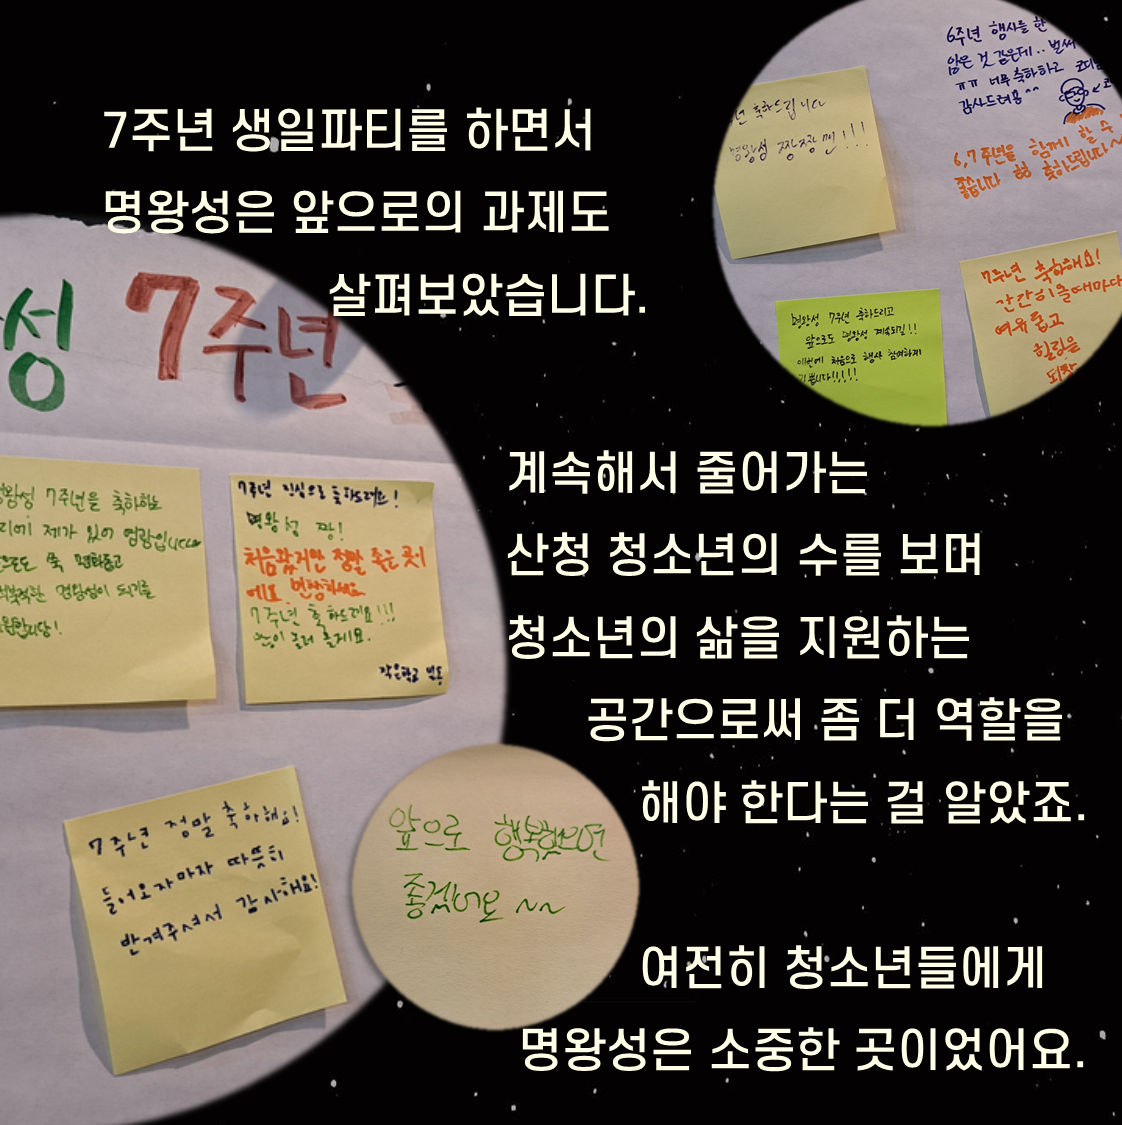 7주년 생일파티를 하면서
명왕성은 앞으로의 과제도
살펴보았습니다.
6주년 행사를 한
않은 것 같은데.. 벌써
ㅠㅠ 너무 축하하고
감사드려용^^
년 축하드립니다
명왕성 짱짱맨!!!
6,7주년을 함께 할 수
좋습니다 축하드립니다~
7주년 축하해요!
간간히 올때마다
여유롭고
힐링을
되찾
명왕성 7주년 축하드리고
앞으로도 명왕성 계속되길!!
이번에 처음으로 행사 참여하게
기쁩니다!!!!!
성 7주년
계속해서 줄어가는
산청 청소년의 수를 보며
청소년의 삶을 지원하는
공간으로써 좀 더 역할을
해야 한다는 걸 알았죠.
명왕성 7주년을 축하하는
자리에 제가 있어 영광입니다
앞으로도 쭉 평화롭고
행복한 명왕성이 되기를
7주년 진심으로 축하드려요!
명왕성 짱!
처음왔지만 정말 좋은 곳이
에요 번창하세요
7주년 축하드려요!!!
많이 놀러 올게요.
작은학교
7주년 정말 축하해요!
들어오자마자 따뜻히
반겨주셔서 감사해요!
앞으로 행복했으면
좋겠어요 ~~
여전히 청소년들에게
명왕성은 소중한 곳이었어요.